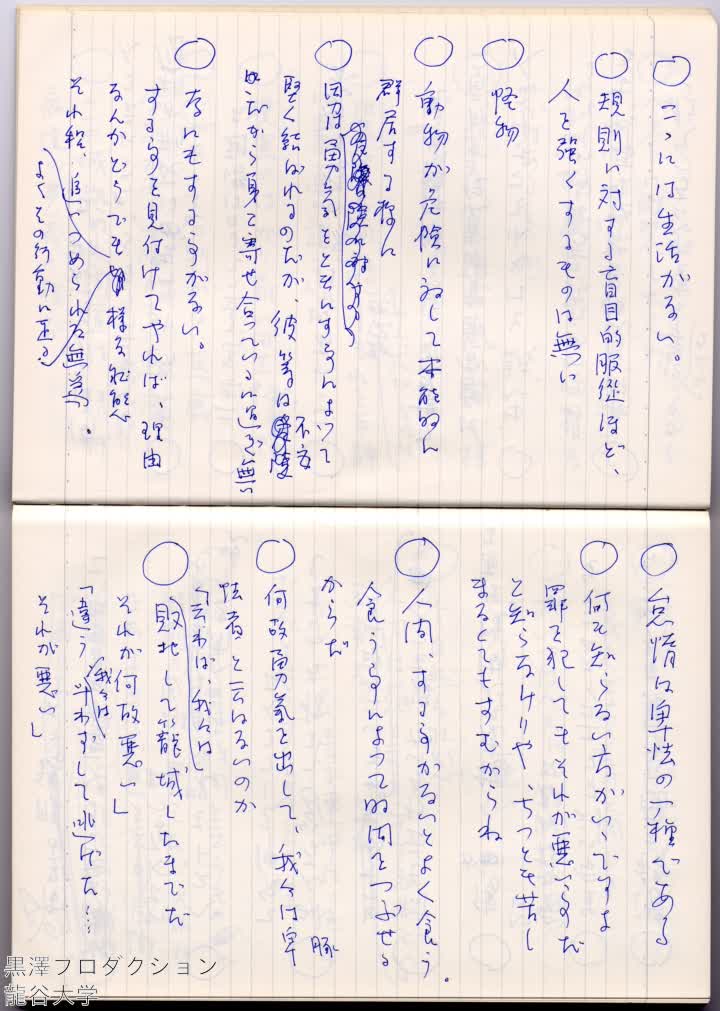 ○ ここには生活がない。
○ 規則に対する盲目的服従ほど、
人を強くするものは無い
○ 怪物
○ 動物が危険に対して本能的に
群居する様に
○ 団結は勇気をともにする事によって
堅く結ばれるのだが、彼等は不安
から身を寄せ合っているに過ぎ無い
○ なにもする事がない。
する事を見付けてやれば、理由
なんかどうでも様な状態
それ程、追いつめられた無為。
よくその行動に走る
○ 怠惰は卑怯の一種である
○ 何も知らない方がいいですよ
罪を犯してもそれが悪い事だ
と知らなけりや、ちつとも苦し
まなくてもすむからね
○ 人間、する事がないとよく食う。
食う事によつて時間をつぶせる
からだ
豚
○ 何故勇気を出して、我々は卑
怯者と云はないのか
「云わば、我々は」
○ 敗北して籠城したまでだ
それが何故悪い」
「違う 我々は 斗わずして逃げた…
それが悪い」
黒澤プロダクション
龍谷大学